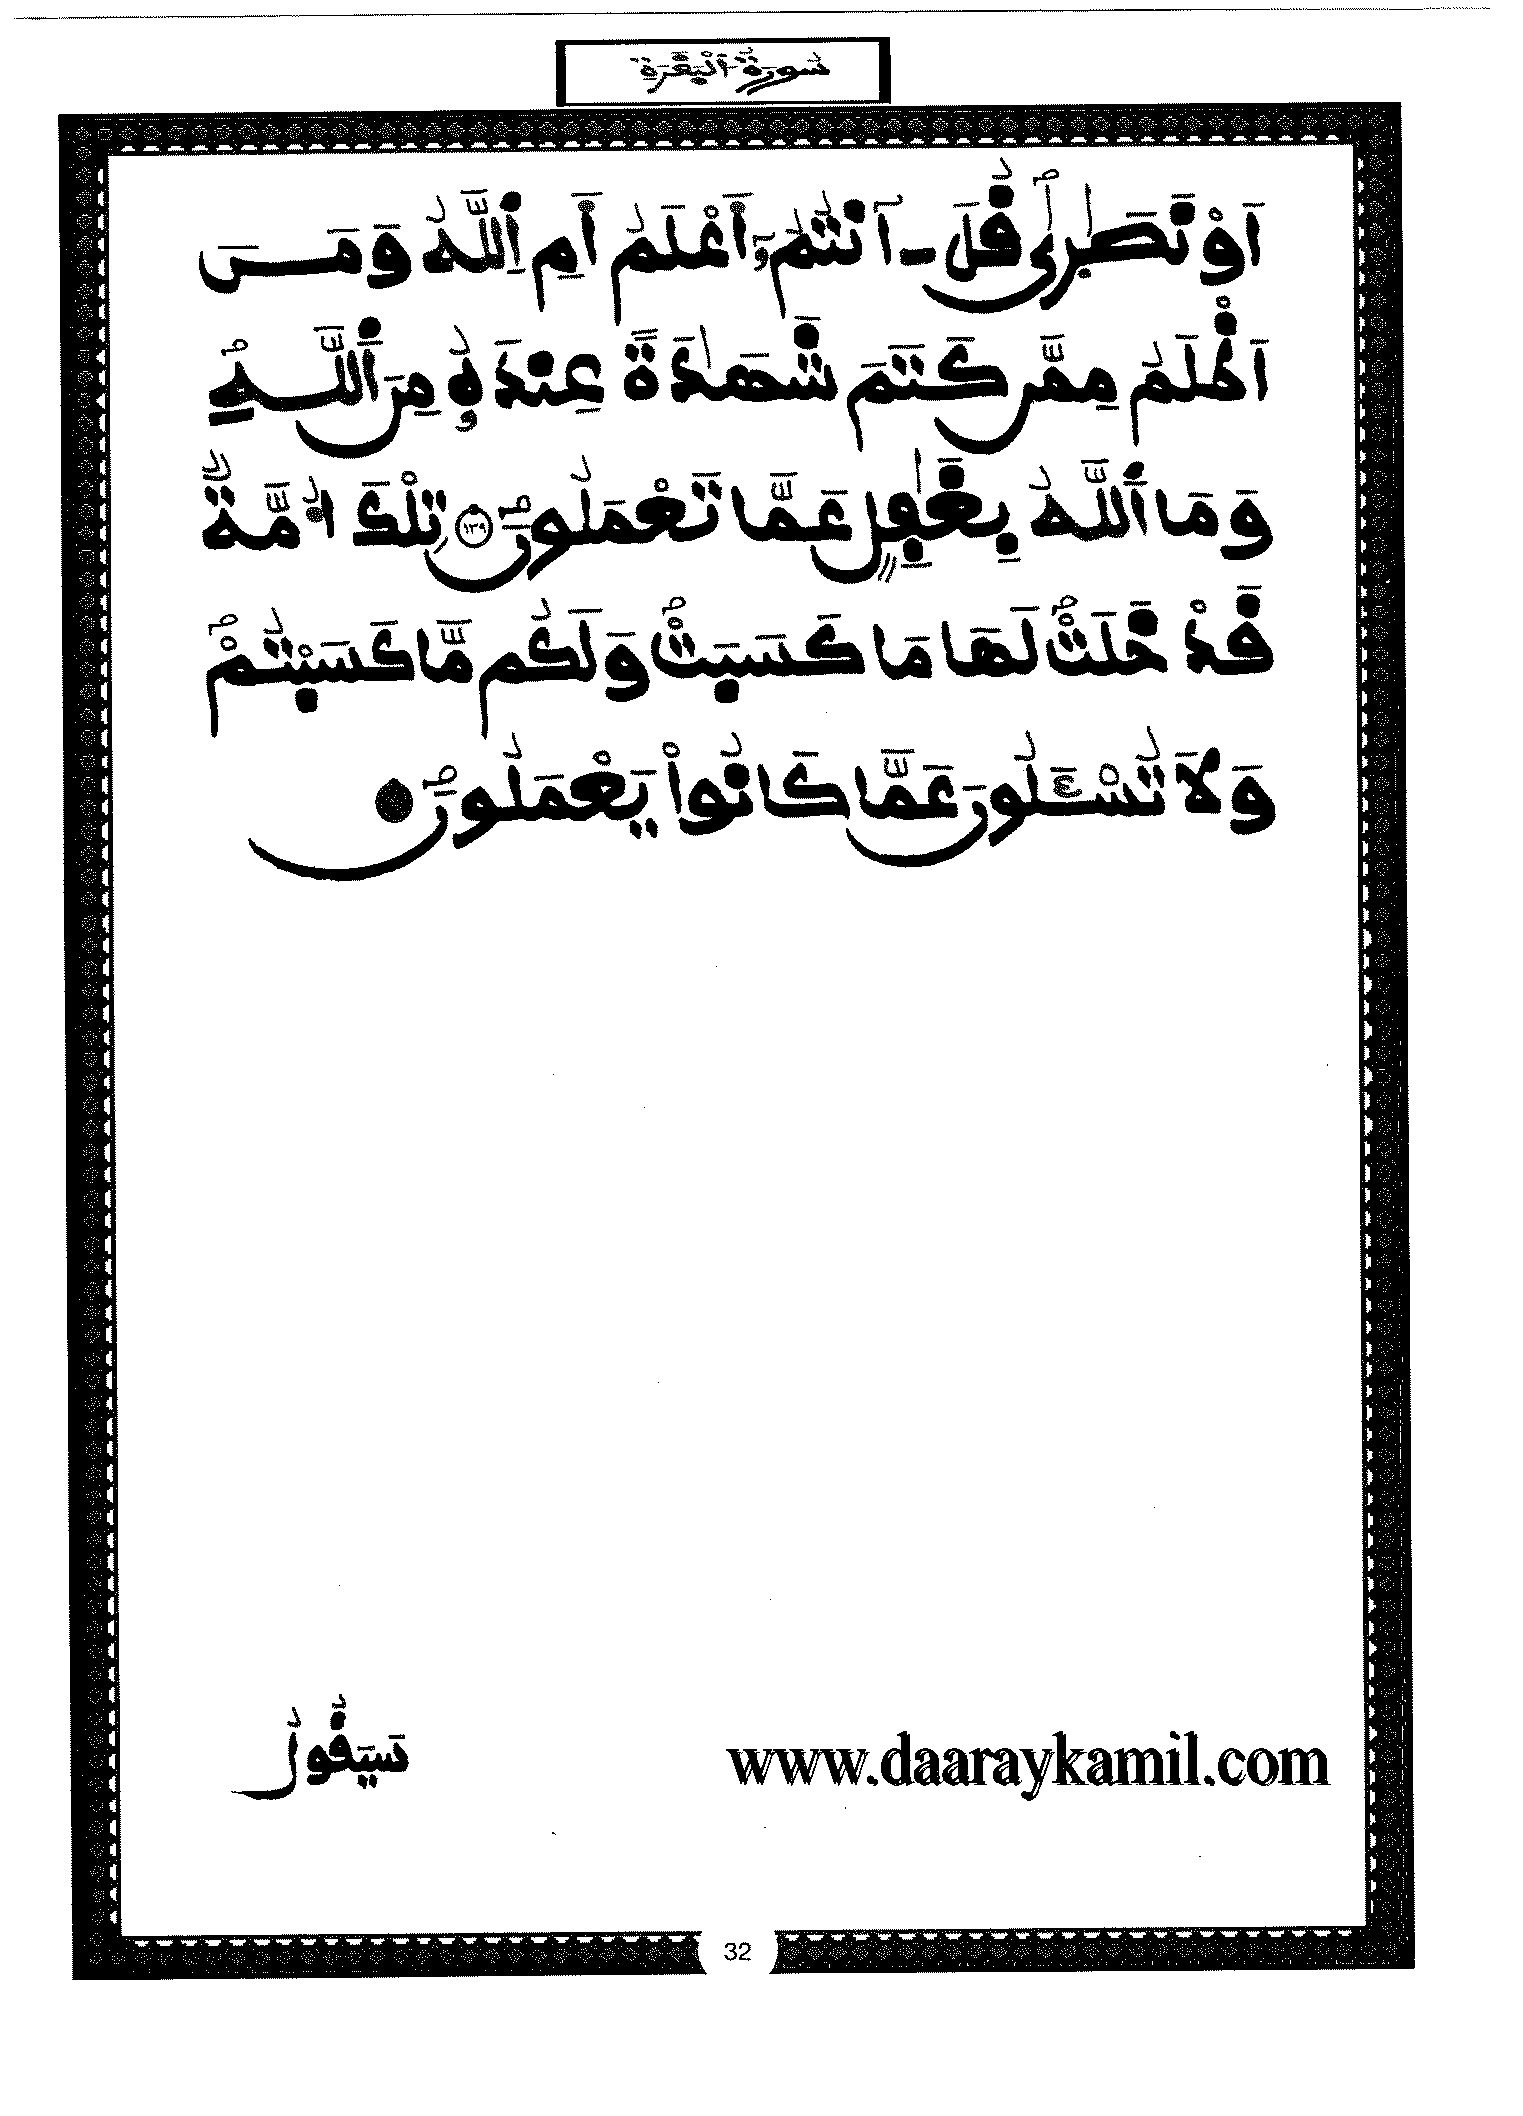 سُورَةُ الْبَقَرَةِ
اَوْ نَصَٰرِىٰ قُلَ ـ آنتُمُۥٓ أَعْلَمُ أَمِ اِللَّهُ وَمَنَ
اَظْلَمُ مِمَّن كَتَمَ شَهَٰدَةً عِندَهُۥ مِنَ اَللَّهِ
وَمَا اَللَّهُ بِغَٰفِلٍ عَمَّا تَعْمَلُونَ ١٣٩ تِلْكَ أُمَّةٌ
قَدْ خَلَتْ لَهَا مَا كَسَبَتْ وَلَكُم مَّا كَسَبْتُمْ
وَلَا تُسْـَٔلُونَ عَمَّا كَانُواْ يَعْمَلُونَ
سَيَقُولُ
www.daaraykamil.com
32